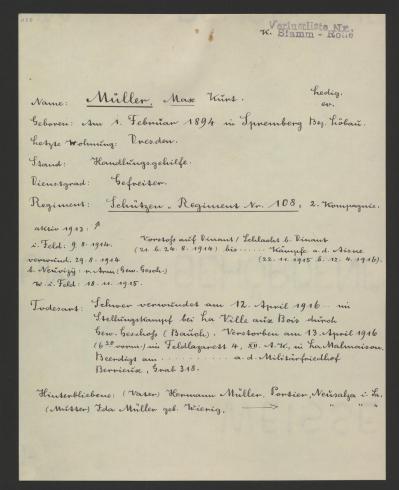 K. Verlustliste Nr.
Stamm - Rolle
Name: Müller, Max Kurt. ledig.
ev.
Geboren: Am 1. Februar 1894 in Spremberg Bez. Löbau.
Letzte Wohnung: Dresden.
Stand: Handlungsgehilfe.
Dienstgrad: Gefreiter.
Regiment: Schützen-Regiment Nr. 108, 2. Kompagnie.
aktiv 1913:
i. Feld: 9. 8. 1914. Vorstoss auf Dinant / Schlacht b. Dinant
(21. b. 24. 8. 1914) bis Kämpfe a. d. Aisne
verwund. 29. 8. 1914 (22. 11. 1915 b. 12. 4. 1916).
b. Neuvizy: (Gew. Gesch.)
w. i. Feld: 18. 11. 1915.
Todesart: Schwer verwundet am 12. April 1916 im
Stellungskampf bei La Ville aux Bois durch
Gew. Geschoß (Bauch). Verstorben am 13. April 1916
vorm.) im Feldlazarett 4, XII. A. K. in La Malmaison.
Beerdigt am a. d. Militärfriedhof
Berrieux, Grab 318.
Hinterbliebene: (Vater) Hermann Müller, Portier, Neusalza i. Sa.
(Mutter) Ida Müller geb. Wierig. " " "